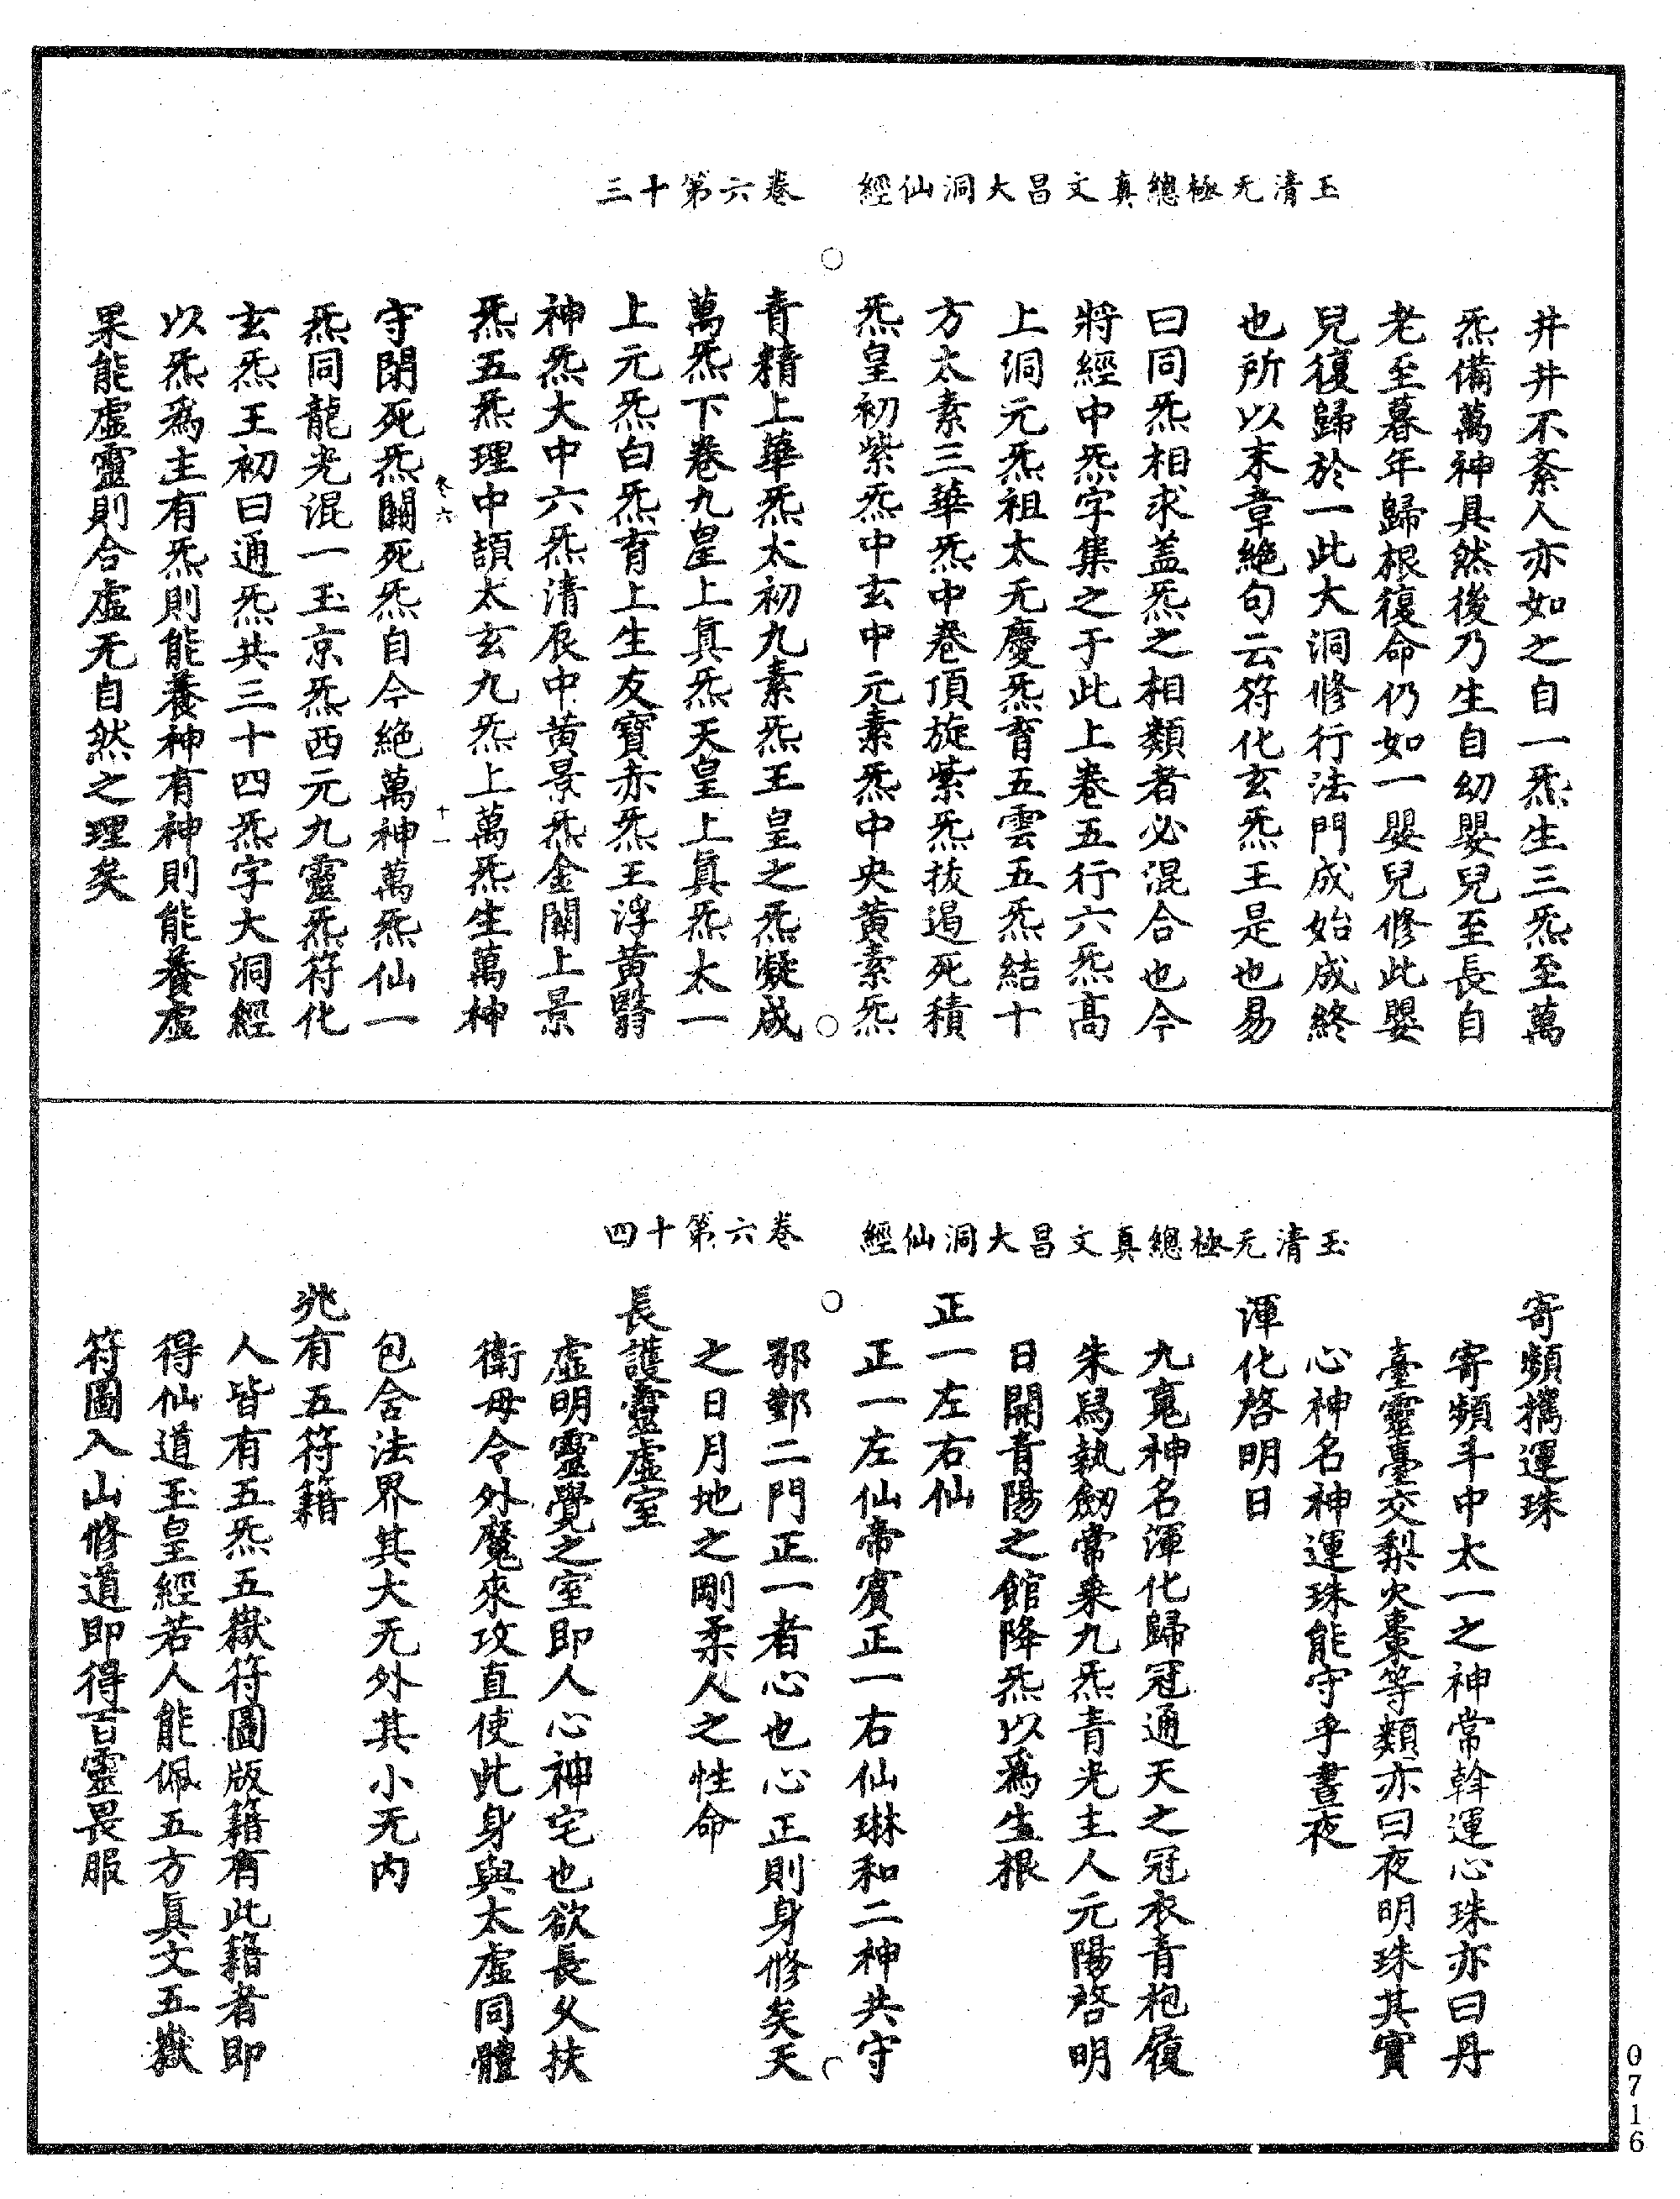 玉清无極總真文昌大洞仙經　卷六第十三
井井不紊人亦如之自一炁生三炁至萬
炁備萬神具然後乃生自幼嬰兒至長自
老至暮年歸根復命仍如一嬰兒修此嬰
兒復歸於一此大洞修行法門成始成終
也所以末章絶句云符化玄炁王是也易
曰同炁相求盖炁之相類者必混合也今
將經中炁字集之于此上卷五行六炁高
上洞元炁祖太无慶炁育五雲五炁結十
方太素三華炁中卷頂旋紫炁抜遏死積
炁皇初紫炁中玄中元素炁中央黄素炁
青精上華炁太初九素炁王皇之炁凝成
萬炁下卷九皇上真炁天皇上真炁太一
上元炁白炁育上生友寶赤炁王浮黄翳
神炁大中六炁清辰中黄景炁金闕上景
炁五炁理中頡太玄九炁上萬炁生萬神
守閉死炁關死炁自今絶萬神萬炁仙一
卷六　十一
炁同龍光混一玉京炁西元九靈炁符化
玄炁王初曰通炁共三十四炁字大洞經
以炁爲主有炁則能養神有神則能養虚
果能虚靈則合虚无自然之理矣
玉清无極總真文昌大洞仙經　卷六第十四
寄頻攜運珠
寄頻斗中太一之神常斡運心珠亦曰丹
臺靈臺交梨火棗等類亦曰夜明珠其實
心神名神運珠能守乎晝夜
渾化啓明日
九𩲸神名渾化歸冠通天之冠衣青袍履
朱舄執劒常乗九炁青光主人元陽啓明
日開青陽之館降炁以爲生根
正一左右仙
正一左仙帝賔正一右仙琳和二神共守
鄩鄞二門正一者心也心正則身修矣天
之日月地之剛柔人之性命
長護靈虚室
虚明靈覺之室即人心神宅也欲長久扶
衛毋令外魔來攻直使此身與太虚同體
包含法界其大无外其小无内
兆有五符籍
人皆有五炁五嶽符圖版籍有此籍者即
得仙道玉皇經若人能佩五方真文五嶽
符圖入山修道即得百靈畏服
0716